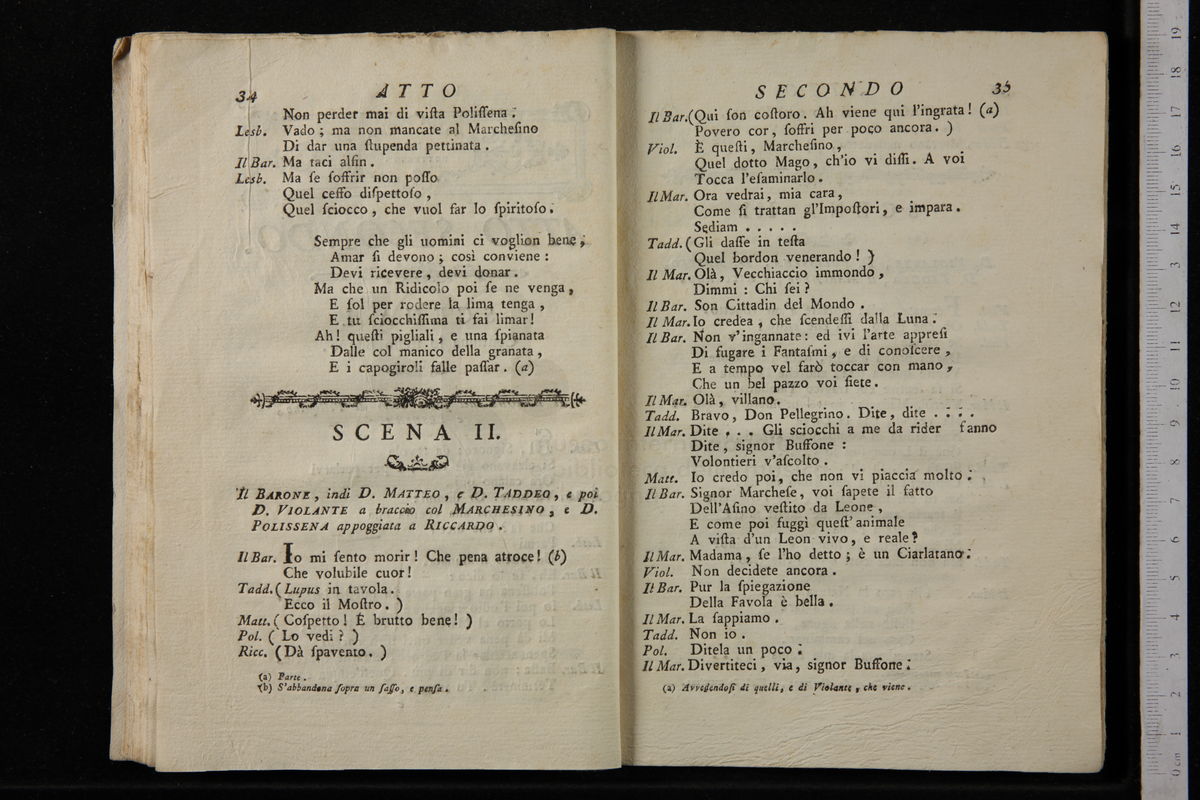 34 ATTO
Non perder mai di viſta Poliſſena.
Lesb. Vado; ma non mancate al Marcheſino
Di dar una ſtupenda pettinata.
Il Bar. Ma taci alfin.
Lesb. Ma ſe ſoffrir non poſſo
Quel ceffo diſpettoſo,
Quel ſciocco, che vuol far lo ſpiritoſo.
Sempre che gli uomini ci voglion bene,
Amar ſi devono; così conviene:
Devi ricevere, devi donar.
Ma che un Ridicolo poi ſe ne venga,
E ſol per rodere la lima tenga,
E tu ſciocchiſſima ti fai limar!
Ah! queſti pigliali, e una ſpianata
Dalle col manico della granata,
E i capogiroli falle paſſar. (a)
SCENA II.
Il BARONE, indi D. MATTEO, e D. TADDEO, e poi
D. VIOLANTE a braccio col MARCHESINO, e D.
POLISSENA appoggiata a RICCARDO.
Il Bar. Io mi ſento morir! Che pena atroce! (b)
Che volubile cuor!
Tadd. (Lupus in tavola.
Ecco il Moſtro.)
Matt. (Coſpetto! È brutto bene!)
Pol. (Lo vedi?)
Ricc. (Dà ſpavento.)
(a) Parte.
(b) S'abbandona ſopra un ſaſſo, e penſa.
SECONDO 35
Il Bar. (Qui ſon coſtoro. Ah viene qui l'ingrata! (a)
Povero cor, ſoffri per poco ancora.)
Viol. È queſti, Marcheſino,
Quel dotto Mago, ch'io vi diſſi. A voi
Tocca l'eſaminarlo.
Il Mar. Ora vedrai, mia cara,
Come ſi trattan gl'Impoſtori, e impara.
Sediam . . . . .
Tadd. (Gli daſſe in teſta
Quel bordon venerando!)
Il Mar. Olà, Vecchiaccio immondo,
Dimmi: Chi ſei?
Il Bar. Son Cittadin del Mondo.
Il Mar. Io credea, che ſcendeſſi dalla Luna.
Il Bar. Non v'ingannate: ed ivi l'arte appreſi
Di fugare i Fantaſmi, e di conoſcere,
E a tempo vel farò toccar con mano,
Che un bel pazzo voi ſiete.
Il Mar. Olà, villano.
Tadd. Bravo, Don Pellegrino. Dite, dite . . . .
Il Mar. Dite . . . Gli sciocchi a me da rider fanno
Dite, signor Buffone:
Volontieri v'aſcolto.
Matt. Io credo poi, che non vi piaccia molto.
Il Bar. Signor Marcheſe, voi ſapete il fatto
Dell'Aſino veſtito da Leone,
E come poi fuggì queſt'animale
A viſta d'un Leon vivo, e reale?
Il Mar. Madama, ſe l'ho detto; è un Ciarlatano.
Viol. Non decidete ancora.
Il Bar. Pur la ſpiegazione
Della Favola è bella.
Il Mar. La ſappiamo.
Tadd. Non io.
Pol. Ditela un poco.
Il Mar. Divertiteci, via, signor Buffone.
(a) Avvedendoſi di quelli, e di Violante, che viene.
19
18
17
16
15
14
13
12
11
10
9
8
7
6
5
4
3
2
1
0 cm